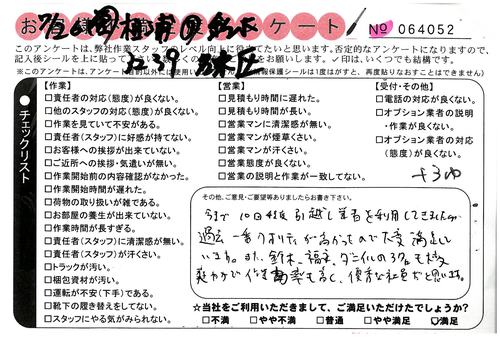 お客様 アンケート
No 064052
このアンケートは、弊社作業スタッフのレベル向上に役立てたいと思います。否定的なアンケートになりますので、
記入後シールを上に貼って
お願いします。✓印は、いくつでも結構です。
チェックリスト
【作業】
□責任者の対応（態度）が良くない。
□他のスタッフの対応（態度）が良くない。
□作業を見ていて不安がある。
□責任者（スタッフ）に好感が持てない。
□お客様への挨拶が出来ていない。
□ご近所への挨拶・気遣いが無い。
□作業開始前の内容確認がなかった。
□作業開始時間が遅れた。
□荷物の取り扱いが雑である。
□お部屋の養生が出来ていない。
□作業時間が長すぎる。
□責任者（スタッフ）に清潔感が無い。
□責任者（スタッフ）が汗くさい。
□トラックが汚い。
□梱包資材が汚い。
□運転が不安（下手）である。
□靴下の履き替えをしてない。
□スタッフにやる気がみられない。
【営業】
□見積もり時間に遅れた。
□見積もり時間が長い。
□営業マンに清潔感が無い。
□営業マンが煙草くさい。
□営業マンが汗くさい。
□営業態度が良くない。
□営業の説明と作業が一致してない。
【受付・その他】
□電話の対応が良くない。
□オプション業者の説明
・作業が良くない。
□オプション業者の対応
（態度）が良くない。
その他、ご意見・ご要望等ありましたらお書き下さい。
今まで10回程引越し業者を利用してきましたが
過去一番クオリティが高かったので大変満足して
います。また、鈴木、福案、ダニイルの3名も大変
爽やかで作業効率も高く、優秀な社員だと思います。
☆当社をご利用いただきまして、ご満足いただけたでしょうか？
□不満 □やや不満 □普通 □やや満足 ☑満足